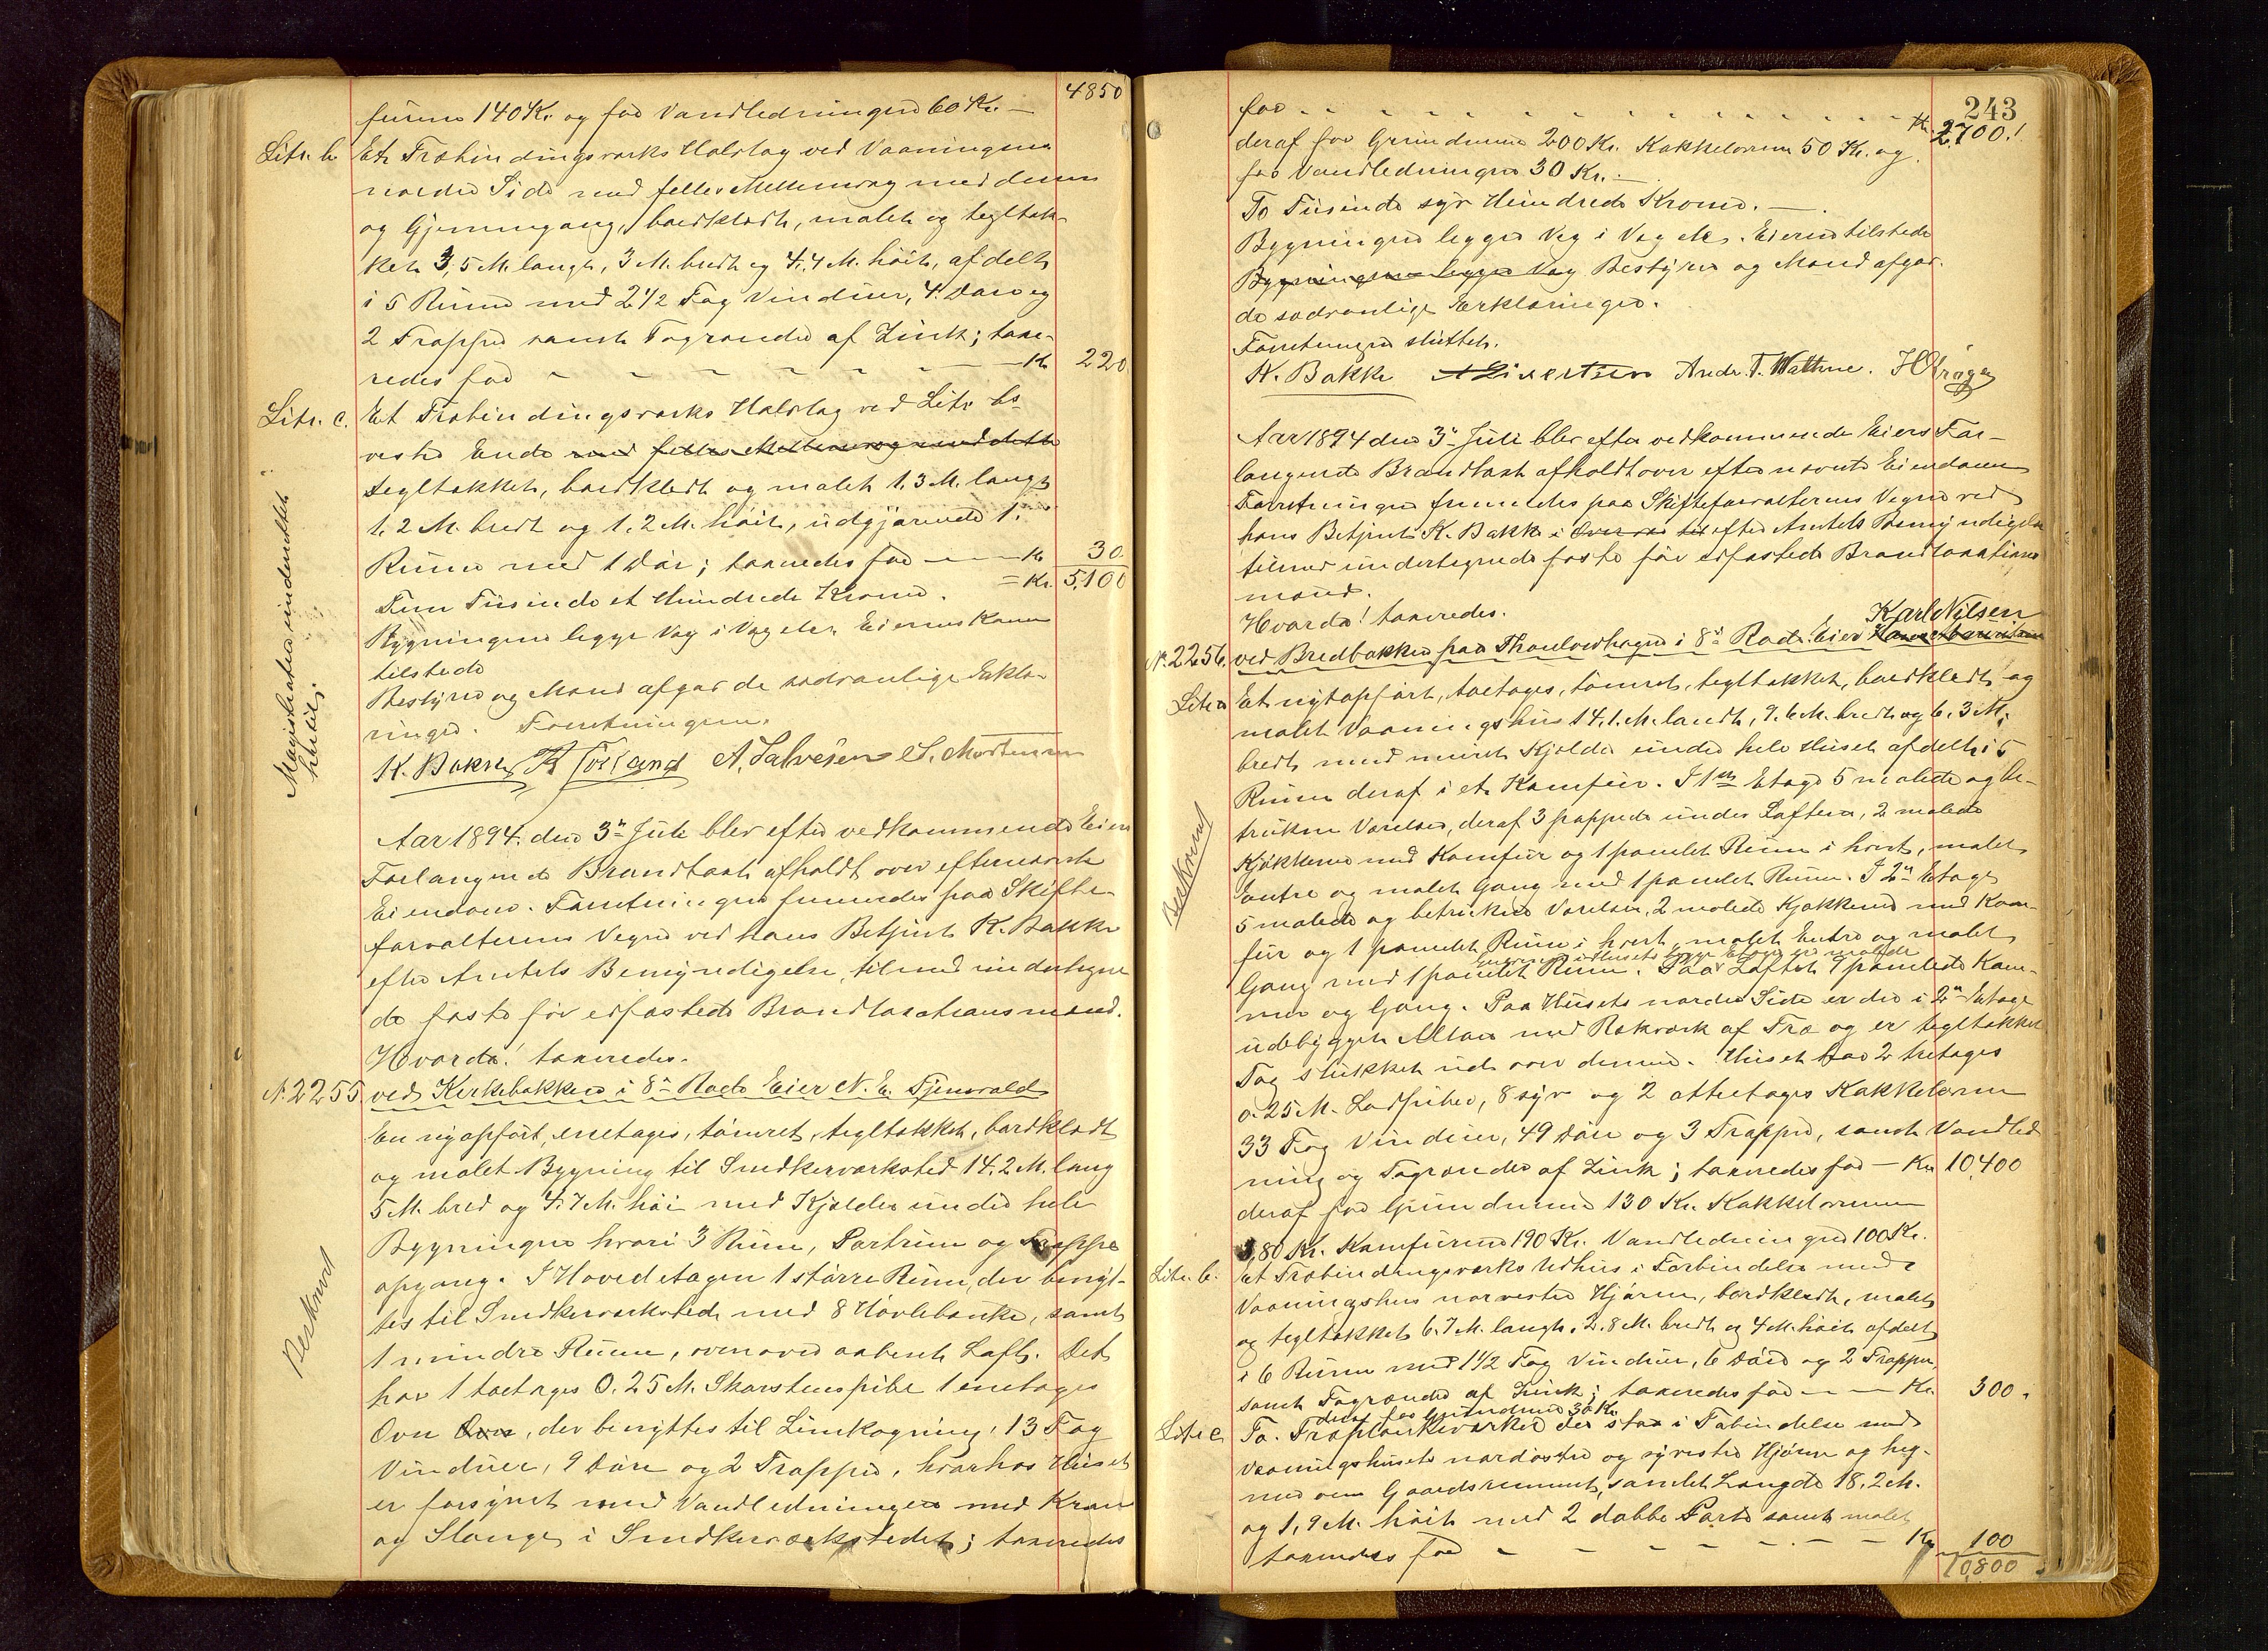 4850
furene 140 Kr. og for Vandledningen 60 Kr. —
Litr. b. Et Træbindingsværks Halvtag ved Vaaningens
nordre Side med fælles Mellemvæg med denne
og Gjennemgang, bordklædt, malet og tegltæk-
ket 3,5 M. langt, 3 M. bredt og 4,4 M. höit, afdelt
i 5 Rum med 2 1/2 Fag Vinduer, 4 Döre og
2 Trapper samt Tagrender af Zink; taxe-
redes for - - - - - - Kr 220
Litr. c. Et Træbindingsværks Halvtag ved Litr. b's
vestre Ende med fælles Mellemvæg med dette
tegltækket, bordklædt og malet 1.3 M. langt
1.2 M. bredt og 1.2 M. höit, udgjörende 1.
Rum med 1 Dör; taxeredes for — — Kr 30.
Fem Tusinde et Hundrede Kroner. = Kr. 5,100
Bygningerne ligge Væg i Væg etc. Eierens Kone
tilstede
Bestyrer og Mænd afgav de sædvanlige Erklæ-
ringer. Forretningen.
K. Bakke A. Salvesen S. Mortensen
Magistraten indmeldtes
hertil.
Aar 1894. den 3die Juli blev efter vedkommende Eiers
Forlangende Brandtaxt afholdt over efternævnte
Eiendom. Forretningen fremmedes paa Skifte-
forvalterens Vegne ved hans Betjent K. Bakke
efter Amtets Bemyndigelse, tilmed undertegne-
de faste för edfæstede Brandtaxationsmænd.
Hvorda! taxeredes.
N. 2255. ved Kirkebakken i 8de Rode Eier N. E. Tjensvold
En nyopfört, enetages, tömret, tegltækket, bordklædt
og malet Bygning til Snedkerværksted 14.2 M. lang
5 M. bred og 4.7 M. höi med Kjelder under hele
Bygningen hvori 3 Rum, Portrum og Trappe
opgang. I Hovedetagen 1 större Rum, der benyt-
tes til Snedkerværksted med 8 Hövlebænke, samt
1 mindre Rum, ovenover aabent Loft. Det
har 1 toetages 0.25 M. Skorstenspibe 1 enetages
Ovn, der benyttes til Limkogning, 13 Fag
Vinduer, 9 Döre og 2 Trapper, hvorhos Huset
er forsynet med Vandledningen med Kran
og Slange i Snedkerværkstedet; taxeredes
Beskrevet
243
for - - - - - - - - - - - - Kr. 2,700.
deraf for Grundmuren 200 Kr. Kakkelovnen 50 Kr. og
for Vandledningen 30 Kr. —
To Tusinde syv Hundrede Kroner. —
Bygningen ligger Væg i Væg etc. Eieren tilstede
Bygningen ligger Væg Bestyrer og Mænd afgav
de sædvanlige Erklæringer.
Forretningen sluttet.
K. Bakke A Sivertsen Andr. T. Wathne.
Aar 1894 den 3die Juli blev efter vedkommende Eiers For-
langende Brandtaxt afholdt over efternævnte Eiendom
Forretningen fremmedes paa Skifteforvalterens Vegne ved
hans Betjent K. Bakke i efter Amtets Bemyndigelse
tilmed undertegnede faste för edfæstede Brandtaxations
mænd.
Hvorda! taxeredes.
Karl Nilsen
N. 2256. ved Bredbakken paa Thorlvedhagen i 8de Rode. Eier
Litr a Et nyopfört, toetages, tömret, tegltækket, bordklædt og
malet Vaaningshus 14.1. M. landt, 9.6 M. bredt og 6.3 M.
bredt med muret Kjelder under hele Huset afdelt i 5
Rum deraf i et Komfur. I 1ste Etage 5 malede og be-
trukne Værelser, deraf 3 pappede under Loftene, 2 malede
Kjökkener med Komfur og 1 panelet Rum i hvert, malet
Entre og malet Gang med 1 panelet Rum. I 2den Etage
5 malede og betrukne Værelser, 2 malede Kjøkkener med Kom-
fur og 1 panelet Rum i hvert, malet Entre og malet
Gang med 1 panelet Rum. Paa Loftet 9 panelede Kam-
mer og Gang. Paa Husets nordre Side er der i 2den Etage
udebygget Altan med Rækværk af Træ og er tegltækket
Tag stukket ud over denne. Huset har 2 tretages
0.25 M. Lodpiber, 8 syv og 2 ottetages Kakkelovne
33 Fag Vinduer, 49 Döre og 3 Trapper, samt Vandled
ning og Tagrender af Zink; taxeredes for — Kr 10,400
deraf for Grundmuren 130 Kr. Kakkelovnene
380 Kr. Komfurene 190 Kr. Vandledningen 100 Kr.
Litr. b. Et Træbindingsværks Udhus i Forbindelse med
Vaaningshus norvestre Hjörne, bordklædt, malet
og tegltækket 6.7 M. langt, 2.8 M. bredt og 4 M. höit afdelt
i 6 Rum med 1 1/2 Fag Vinduer, 6 Döre og 2 Trapper,
samt Tagrender af Zink; taxeredes for — — Kr. 300.
deraf for Grundmur 30 Kr.
Litr c To. Træplankeværker der staa i Forbindelse med
Vaaningshusets nordöstre og sydvestre Hjörne og heg-
ner om Gaardsrummet, samlet Længde 18.2 M.
og 1,9 M. höit med 2 dobbe Porte samt malet
taxeredes for - - - - - - Kr. 100
10,800
Beskrevet